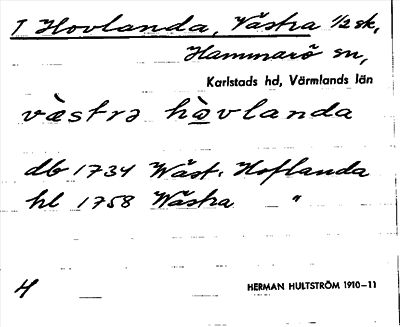 T Hovlanda, Västra 1/2 sk,
Hammarö sn,
Karlstads hd, Värmlands län
vàstrə hàvlanda
db 1734 Wäst. Hoflanda
hl 1758 Wästra "
4
HERMAN HULTSTRÖM 1910–11